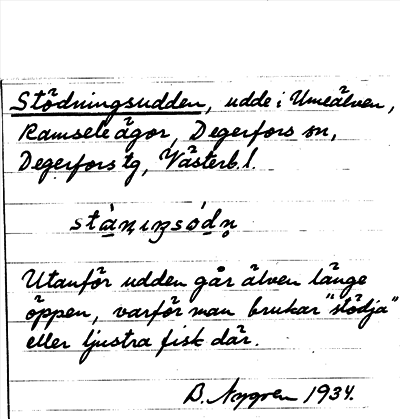 Stödningsudden, udde i Umeälven,
Ramsele ägor, Degerfors sn,
Degerfors tg, Västerb. l.
Utanför udden går älven länge
öppen, varför man brukar "stödja"
eller ljustra fisk där.
D. Nygren 1934.